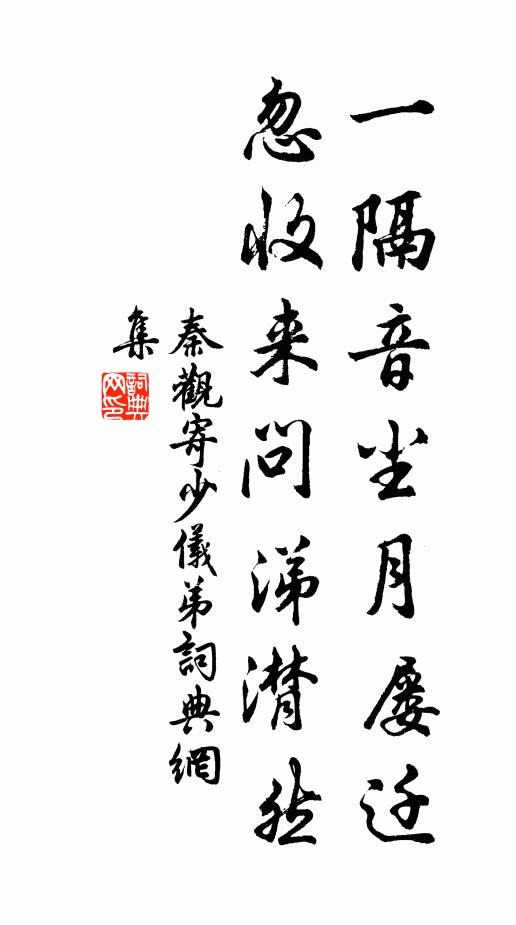 一隔音尘月屡迁
忽收来问涕潸然
秦觀寄少儀弟詞典網
集
詞典
网印